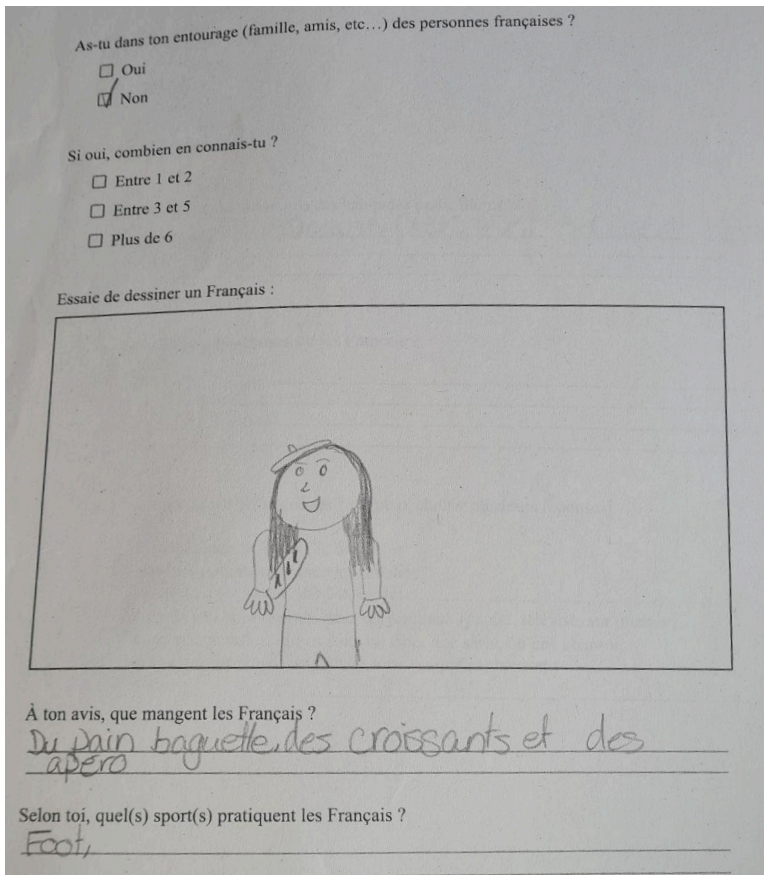 As-tu dans ton entourage (famille, amis, etc…) des personnes françaises ?
Oui
Non
Si oui, combien en connais-tu ?
Entre 1 et 2
Entre 3 et 5
Plus de 6
Essaie de dessiner un Français :
À ton avis, que mangent les Français ?
Du pain baguette, des croissants et des
apéro
Selon toi, quel(s) sport(s) pratiquent les Français ?
Foot,